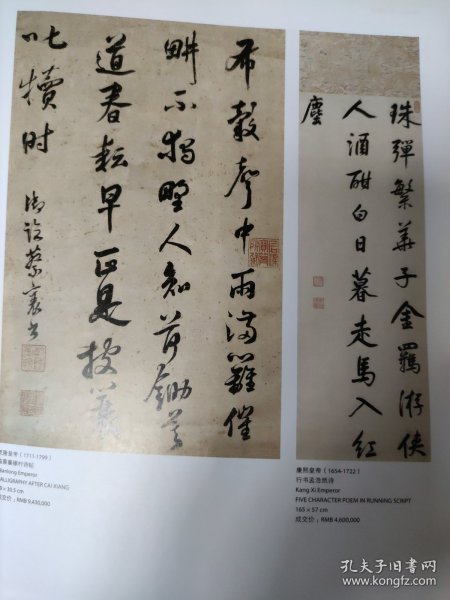 布穀聲中雨滿催
畊不獨野人知荷鋤莫
道春耘早正是披蓑
叱犢时
御临蔡襄书
珠彈繁華子金羈游俠
人酒酣白日暮走馬入紅
塵
隆皇帝（1711-1799）
ianlong Emperor
ALLIGRAPHY AFTER CAI XIANG
× 30.5 cm
成交价：RMB 9,430,000
康熙皇帝（1654-1722）
行书孟浩然诗
Kang Xi Emperor
FIVE CHARACTER POEM IN RUNNING SCRIPT
165 × 57 cm
成交价：RMB 4,600,000
孔夫子旧书网
www.kongfz.com